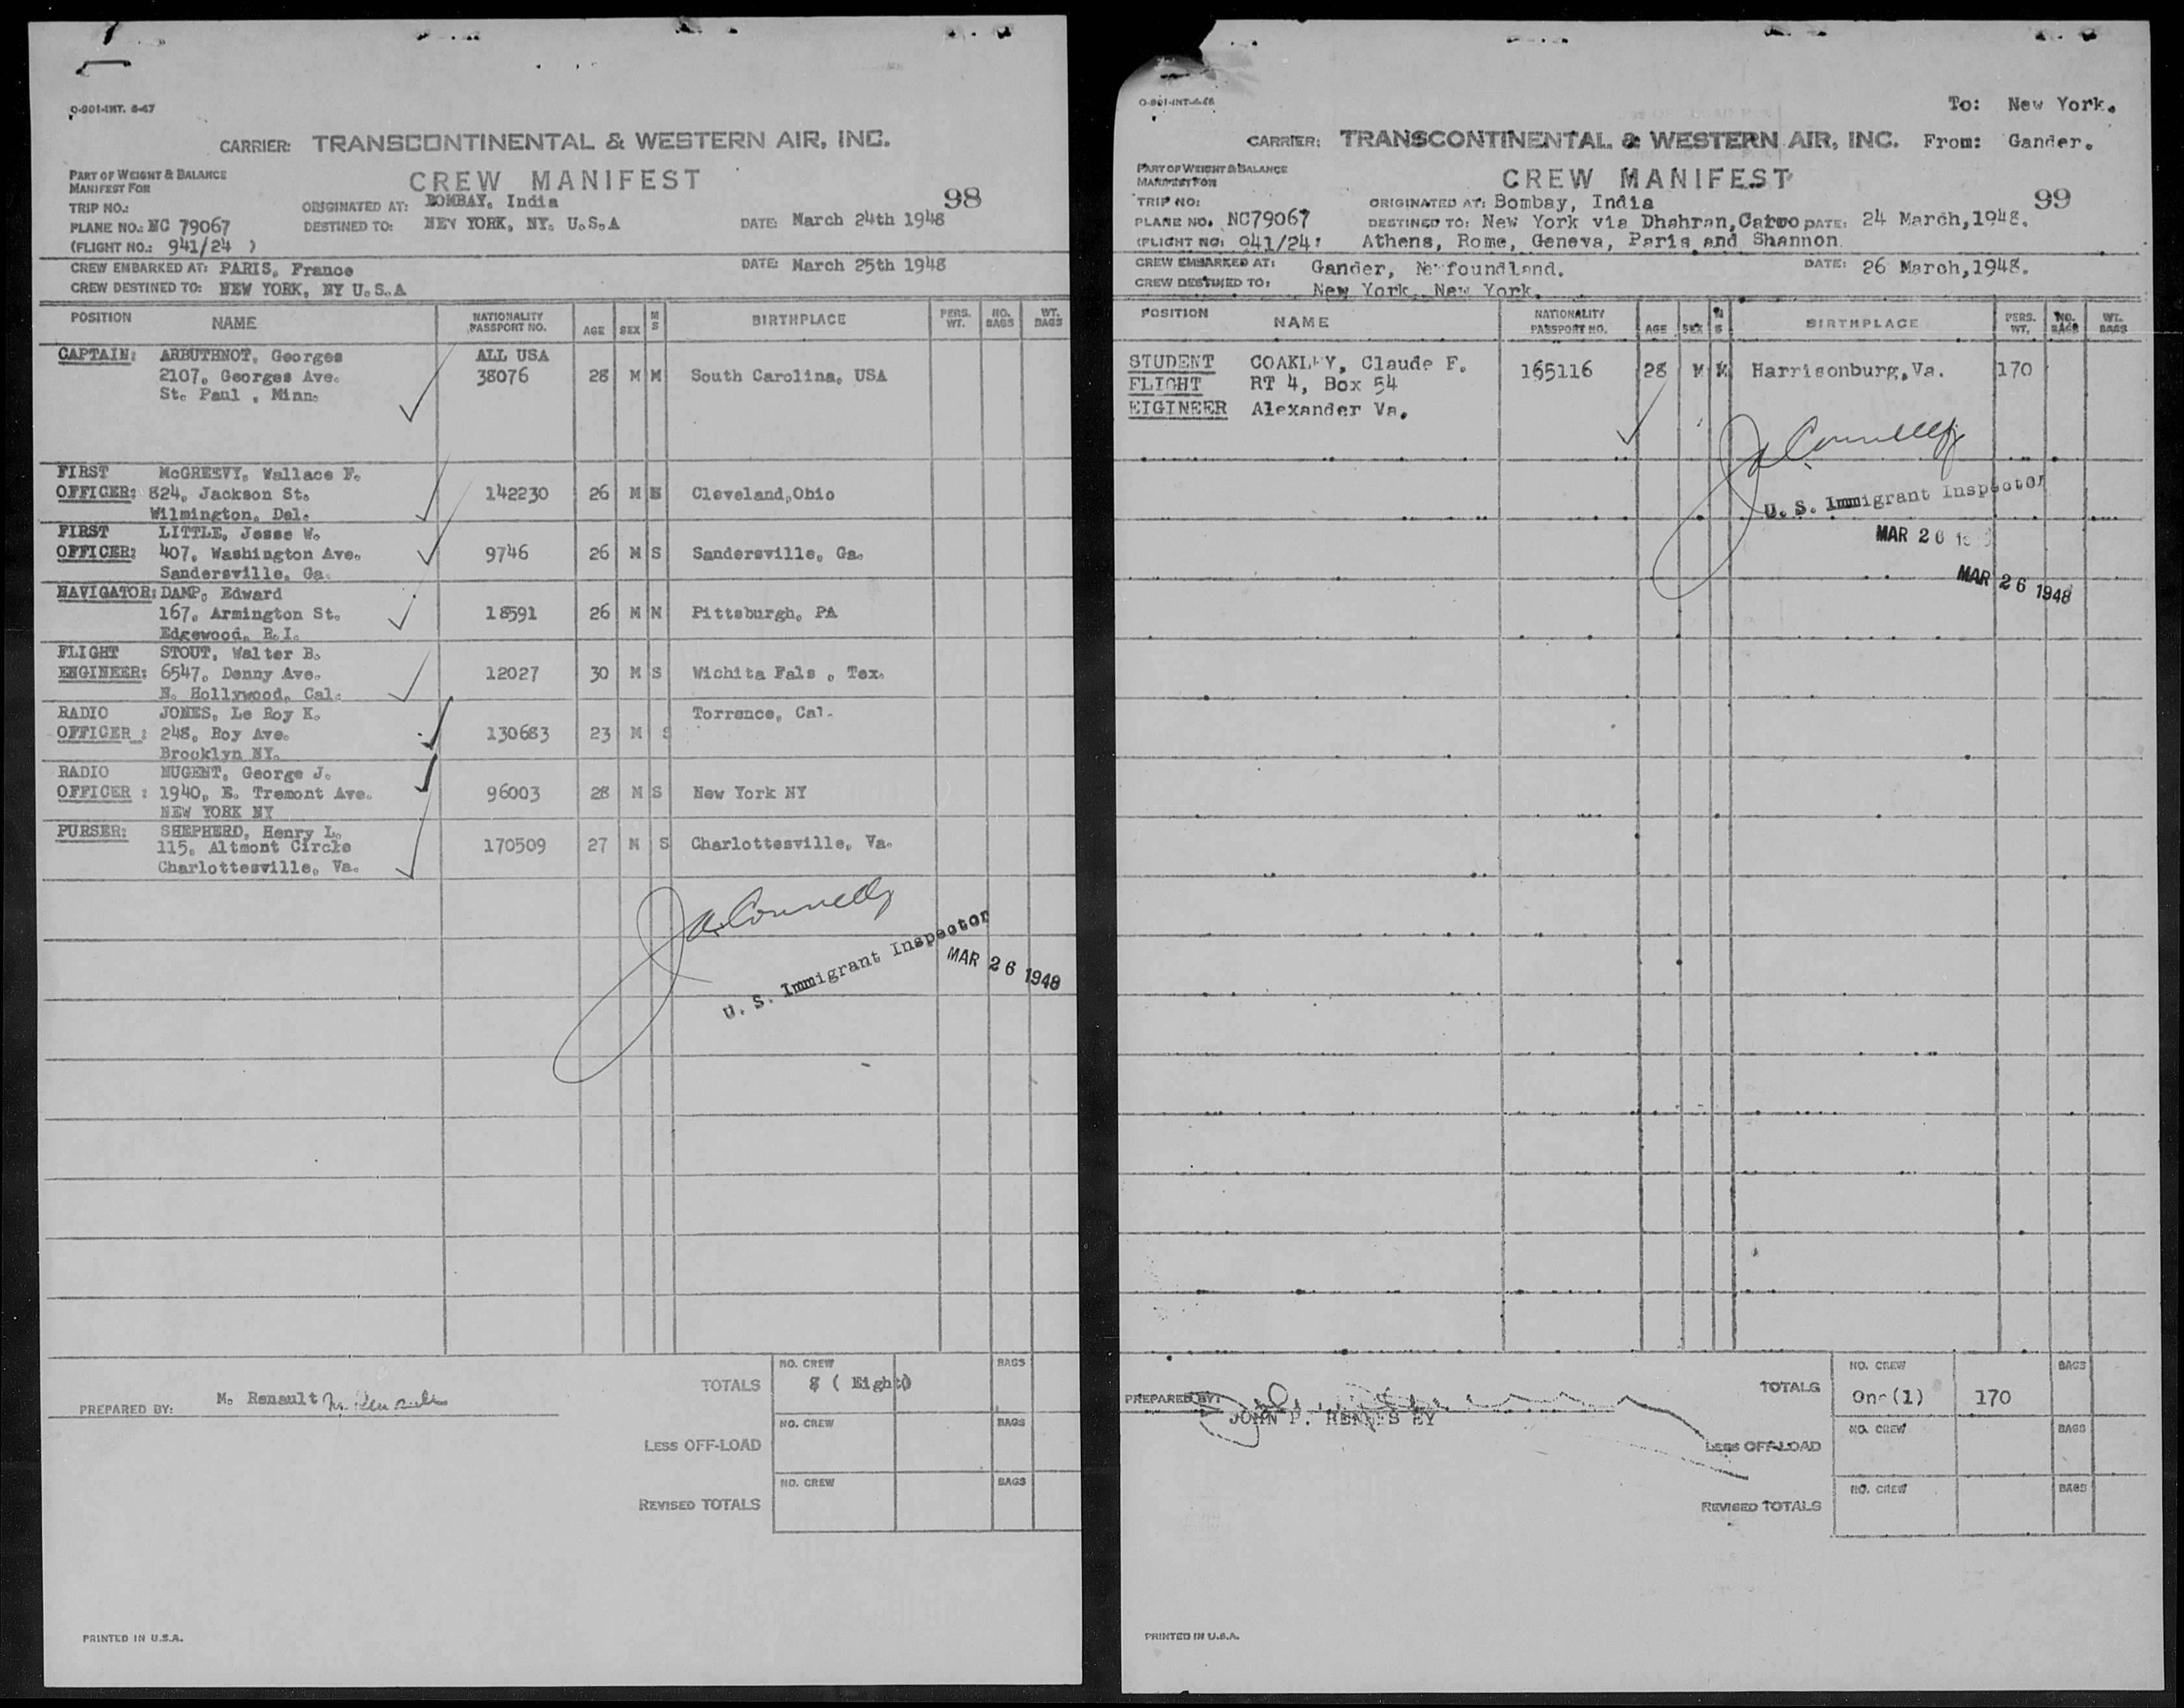 O-901-INT. 6-47
CARRIER: TRANSCONTINENTAL & WESTERN AIR, INC.
PART OF WEIGHT & BALANCE
MANIFEST FOR
CREW MANIFEST
98
TRIP NO.:
ORIGINATED AT: BOMBAY, India
PLANE NO.: NC 79067
DESTINED TO: NEW YORK, NY. U.S.A
DATE: March 24th 1948
(FLIGHT NO.: 941/24 )
CREW EMBARKED AT: PARIS, France
DATE: March 25th 1948
CREW DESTINED TO: NEW YORK, NY U.S.A
POSITION NAME NATIONALITY PASSPORT NO. AGE SEX M S BIRTHPLACE PERS. WT. NO. BAGS WT. BAGS
CAPTAIN: ARBUTHNOT, Georges ALL USA
2107, Georges Ave. 38076 28 M M South Carolina, USA
St. Paul , Minn.
FIRST McGREEVY, Wallace F.
OFFICER: 824, Jackson St. 142230 26 M Cleveland,Ohio
Wilmington, Del.
FIRST LITTLE, Jesse W.
OFFICER: 407, Washington Ave. 9746 26 M S Sandersville, Ga.
Sandersville, Ga.
NAVIGATOR: DAMP, Edward
167, Armington St. 18591 26 M M Pittsburgh, PA
Edgewood, R.I.
FLIGHT STOUT, Walter B.
ENGINEER: 6547, Denny Ave. 12027 30 M S Wichita Fals , Tex.
N. Hollywood, Cal.
RADIO JONES, Le Roy K. Torrence, Cal.
OFFICER : 248, Roy Ave. 130683 23 M S
Brooklyn NY.
RADIO NUGENT, George J.
OFFICER : 1940, E. Tremont Ave. 96003 28 M S New York NY
NEW YORK NY
PURSER: SHEPHERD, Henry L.
115, Altmont Circle 170509 27 M S Charlottesville, Va.
Charlottesville, Va.
J A Connelly
U. S. Immigrant Inspector
MAR 26 1948
TOTALS NO. CREW 8 ( Eight) BAGS
PREPARED BY: M. Renault M. Renault
LESS OFF-LOAD NO. CREW BAGS
REVISED TOTALS NO. CREW BAGS
PRINTED IN U.S.A.
O-901-INT-4-46
To: New York.
CARRIER: TRANSCONTINENTAL & WESTERN AIR, INC. From: Gander.
PART OF WEIGHT & BALANCE
MANIFEST FOR
CREW MANIFEST
99
TRIP NO:
ORIGINATED AT: Bombay, India
PLANE NO. NC79067
DESTINED TO: New York via Dhahran, Cairo DATE: 24 March,1948.
(FLIGHT NO: 941/24)
Athens, Rome, Geneva, Paris and Shannon
CREW EMBARKED AT: Gander, Newfoundland.
DATE: 26 March,1948.
CREW DESTINED TO: New York, New York.
POSITION NAME NATIONALITY PASSPORT NO. AGE SEX M S BIRTHPLACE PERS. WT. NO. BAGS WT. BAGS
STUDENT COAKLEY, Claude F.
FLIGHT RT 4, Box 54 165116 28 M M Harrisonburg,Va. 170
EIGINEER Alexander Va.
J A Connelly
U. S. Immigrant Inspector
MAR 26
MAR 26 1948
TOTALS NO. CREW One(1) 170 BAGS
PREPARED BY:
JOHN P.
LESS OFF-LOAD NO. CREW BAGS
REVISED TOTALS NO. CREW BAGS
PRINTED IN U.S.A.